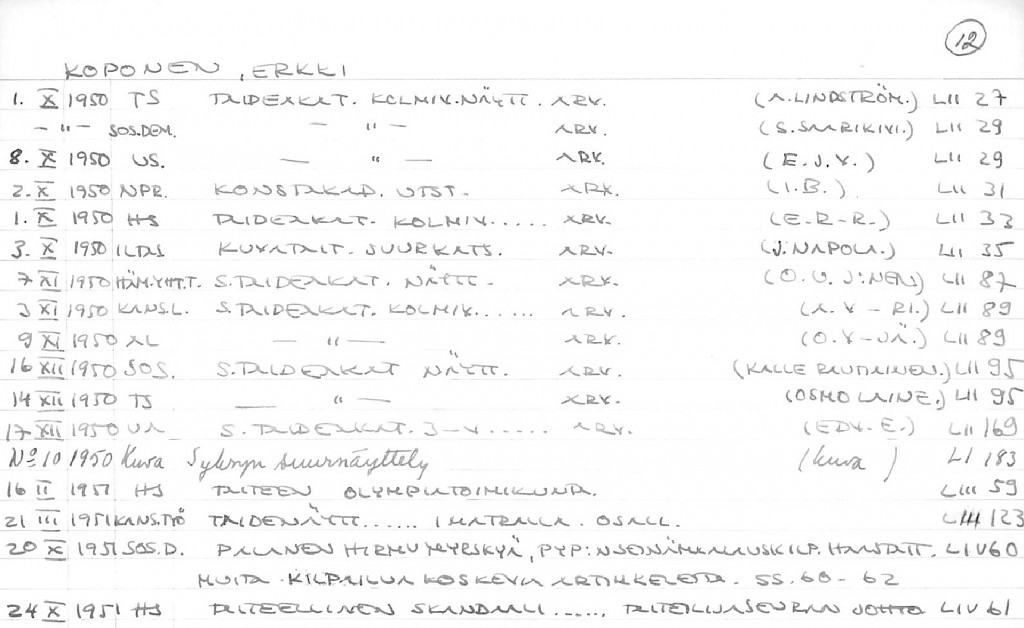 12
KOPONEN, ERKKI
1. X 1950 TS TAIDEAKAT. KOLMIV.NÄYTT. ARV. (A.LINDSTRÖM.) LII 27
— " — SOS.DEM. — " — ARV. (S.SAARIKIVI.) LII 29
8. X 1950 US. — " — ARV. (E.J.V.) LII 29
2. X 1950 NPR. KONSTAKAD. UTST. ARV. (I.B.) LII 31
1. X 1950 HS TAIDEAKAT. KOLMIV..... ARV. (E-R-R.) LII 33
3. X 1950 ILTAS KUVATAIT. SUURKATS. ARV. (J.NAPOLA.) LII 35
7 XI 1950 HÄM.YHT.T. S.TAIDEAKAT. NÄYTT. ARV. (O.V. J:NEN) LII 87
3 XI 1950 KANS.L. S.TAIDEAKAT. KOLMIV...... ARV. (A.V - RI.) LII 89
9 XI 1950 AL — " — ARV. (O.V-JÄ.) LII 89
16 XII 1950 SOS. S.TAIDEAKAT NÄYTT. ARV. (KALLE RAUTIAINEN.) LII 95
14 XII 1950 TS — " — ARV. (OSMO LAINE.) LII 95
17 XII 1950 UA S.TAIDEAKAT. 3-V..... ARV. (EDV. E.) LII 169
No 10 1950 Kuva Syksyn suurnäyttely (kuva) LI 183
16 II 1951 HS TAITEEN OLYMPIATOIMIKUNTA. LIII 59
21 III 1951 KANS.TYÖ TAIDENÄYTT...... IMATRALLA. OSALL. LIII 123
20 X 1951 SOS.D. PALANEN HIRMUMYRSKYÄ, PYP:N SEINÄMAALAUSKILP. HAASTATT. LIV 60
MUITA KILPAILUA KOSKEVIA ARTIKKELEITA. SS. 60 - 62
24 X 1951 HS TAITEELLINEN SKANDAALI ....., TAITEILIJASEURAN JOHTO LIV 61